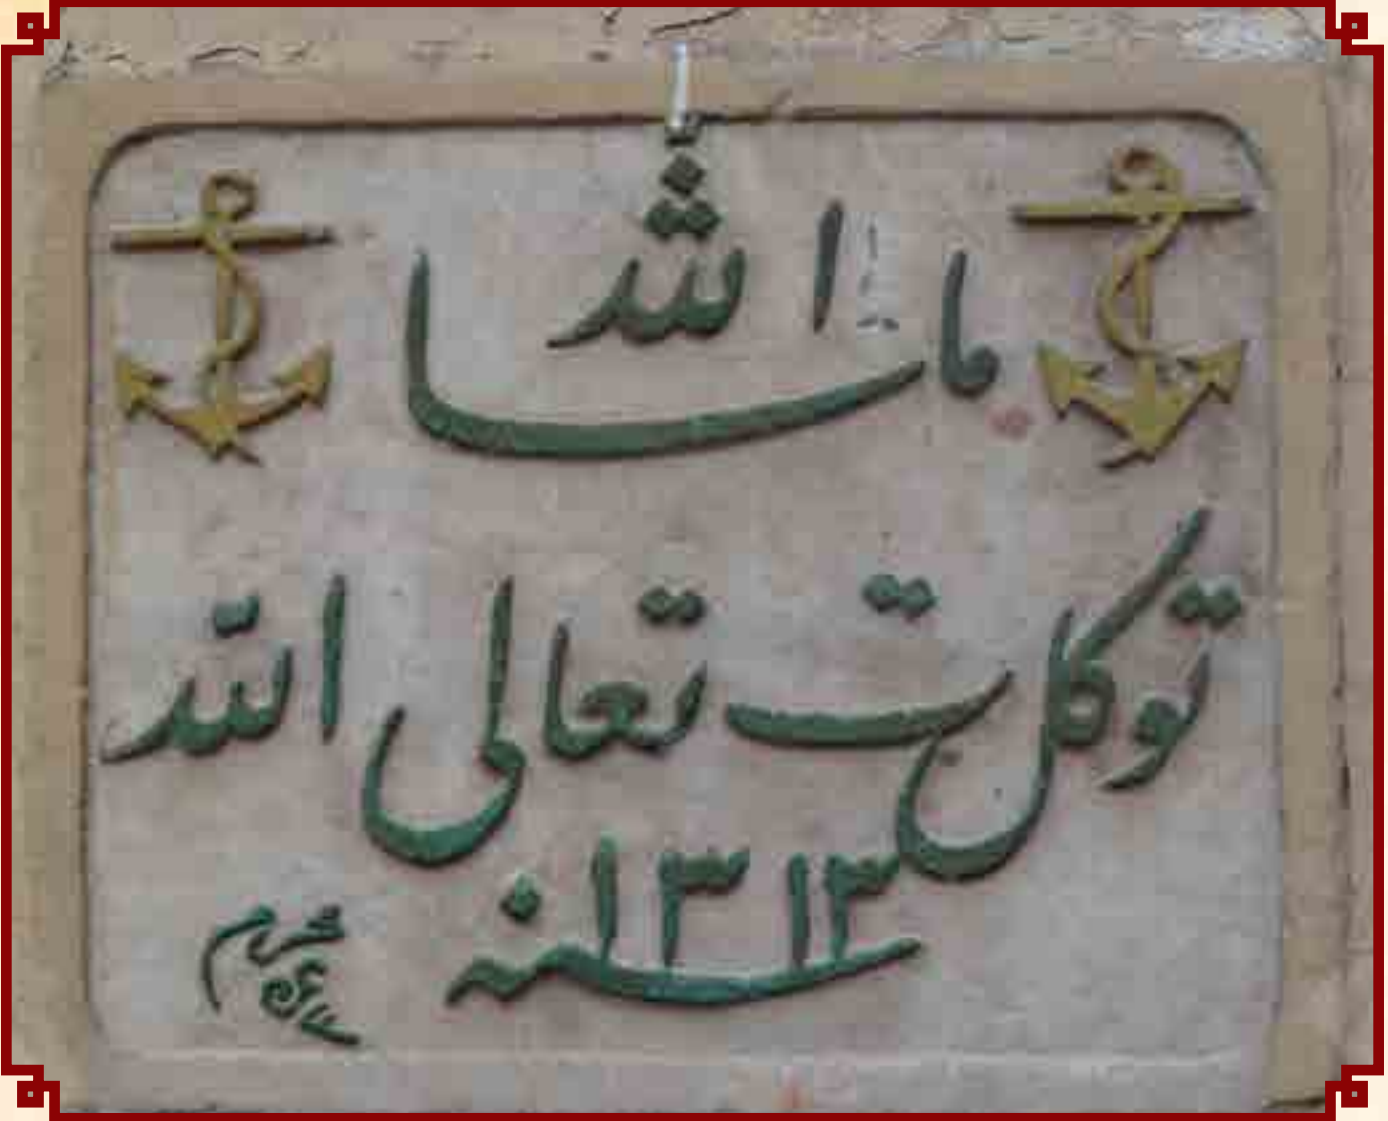 ما شا الله
توكلت تعالى الله
سنه ١٣١٣
محرم